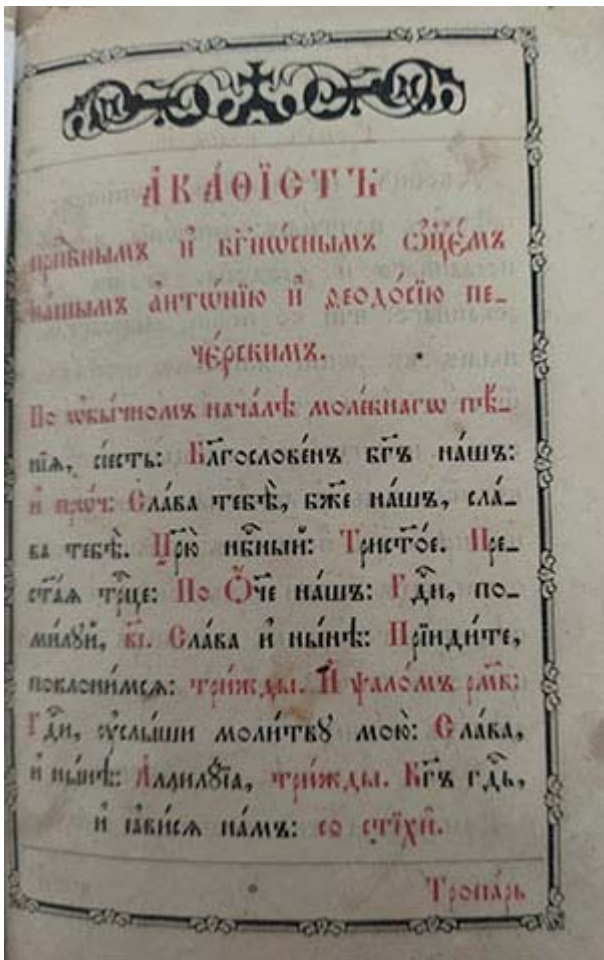 А҆КА́ѲЇСТЪ
прпⷣбнымъ и҆ бг҃ѡно́снымъ ѻ҆тцє́мъ
на́шымъ а҆нтѡ́нїю и҆ ѳеодо́сїю пе-
че́рскимъ.
По ѡ҆бы́чномъ нача́лѣ моле́бнагѡ пѣ́-
нїѧ, сїе́сть: Бл҃гослове́нъ бг҃ъ на́шъ:
и҆ про́ч: Сла́ва тебѣ̀, бж҃е на́шъ, сла́-
ва тебѣ̀. Цр҃ю̀ нбⷭ҇ный: Трист҃о́е. Пре-
ст҃а́ѧ трⷪ҇це: По Ѻ҆́ч҃е на́шъ: Гдⷭ҇и, по-
ми́лꙋй, в҃і. Сла́ва и҆ ны́нѣ: Прїиди́те,
поклони́мсѧ: три́жды. И҆ ѱало́мъ рм҃в:
Гдⷭ҇и, ᲂу҆слы́ши моли́твꙋ мою̀: Сла́ва,
и҆ ны́нѣ: А҆ллилꙋ́їа, три́жды. Бг҃ъ гдⷭ҇ь,
и҆ ꙗ҆ви́сѧ на́мъ: со стїхѝ.
Тропа́рь